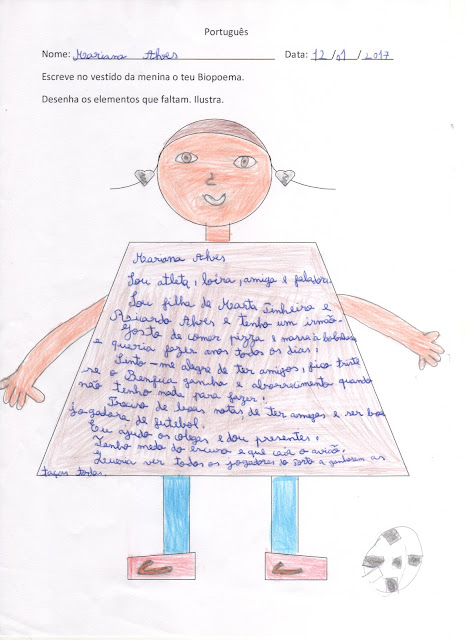 Português
Nome: Mariana Alves Data: 12/01/2017
Escreve no vestido da menina o teu Biopoema.
Desenha os elementos que faltam. Ilustra.
Mariana Alves
Sou atleta, loira, amiga e faladora.
Sou filha de Marta Pinheiro e
Ricardo Alves e tenho um irmão.
Gosto de comer pizza e massa à bolonhesa
e queria fazer anos todos os dias.
Sinto-me alegre de ter amigos, fico triste
se o Benfica ganha e aborrecimento quando
não tenho nada para fazer.
Preciso de boas notas, de ter amigos e ser boa
jogadora de futebol.
Eu ajudo os colegas e dou presentes.
Tenho medo do escuro e que caia o avião.
Queria ver todos os jogadores do Porto a ganharem as
taças todas.